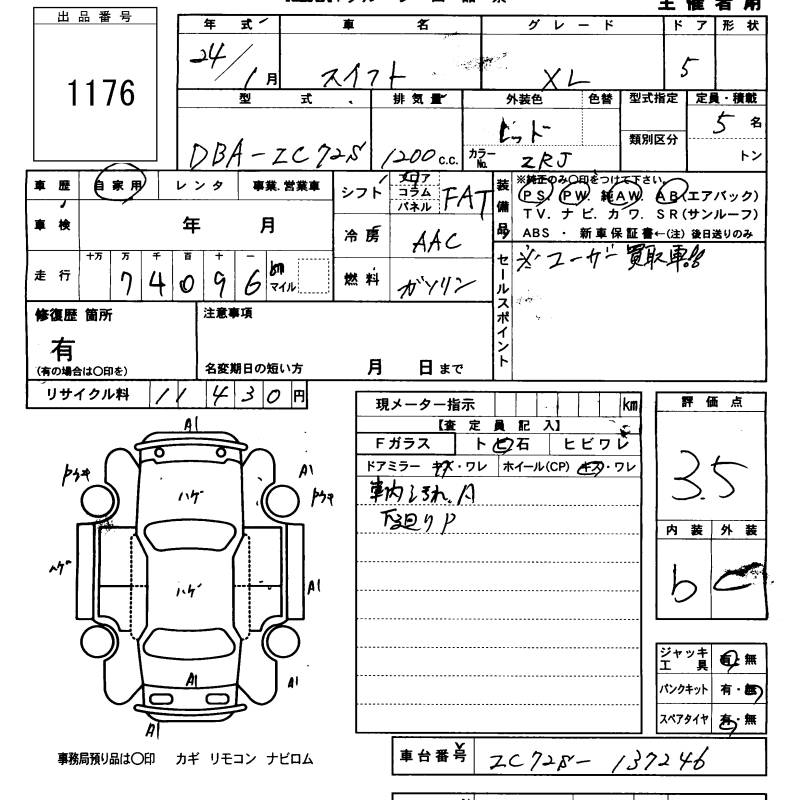 主催者用
出品番号
1176
年式 車名 グレード ドア 形状
24/1月 スイフト XL 5
型式 排気量 外装色 色替 型式指定 定員・積載
類別区分
DBA-ZC72S 1200c.c. レッド 5名
カラーNo. ZRJ トン
車歴 自家用 レンタ 事業.営業車
シフト フロア コラム パネル FAT
装備品
※純正のみ○印をつけて下さい。
PS. PW. 純AW. AB(エアバック)
TV. ナビ. カワ. SR(サンルーフ)
ABS・新車保証書←(注)後日送りのみ
車検 年 月
冷房 AAC
走行 十万 万 千 百 十 一
74096 km マイル
燃料 ガソリン
セールスポイント
※ユーザー買取車!!
修復歴 箇所
有
(有の場合は○印を)
注意事項
名変期日の短い方 月 日まで
リサイクル料 11430円
現メーター指示 km
【査定員記入】
Fガラス トビ石 ヒビワレ
ドアミラー キズ・ワレ ホイール(CP) キズ・ワレ
車内よごれ.A
下廻りP
評価点
3.5
内装 外装
b C
A1
ハゲ
A1
ハゲ
ハゲ
A1
A1
A1
A1
ジャッキ工具 有・無
パンクキット 有・無
スペアタイヤ 有・無
事務局預り品は○印 カギ リモコン ナビロム
車台番号 ZC72S-137246